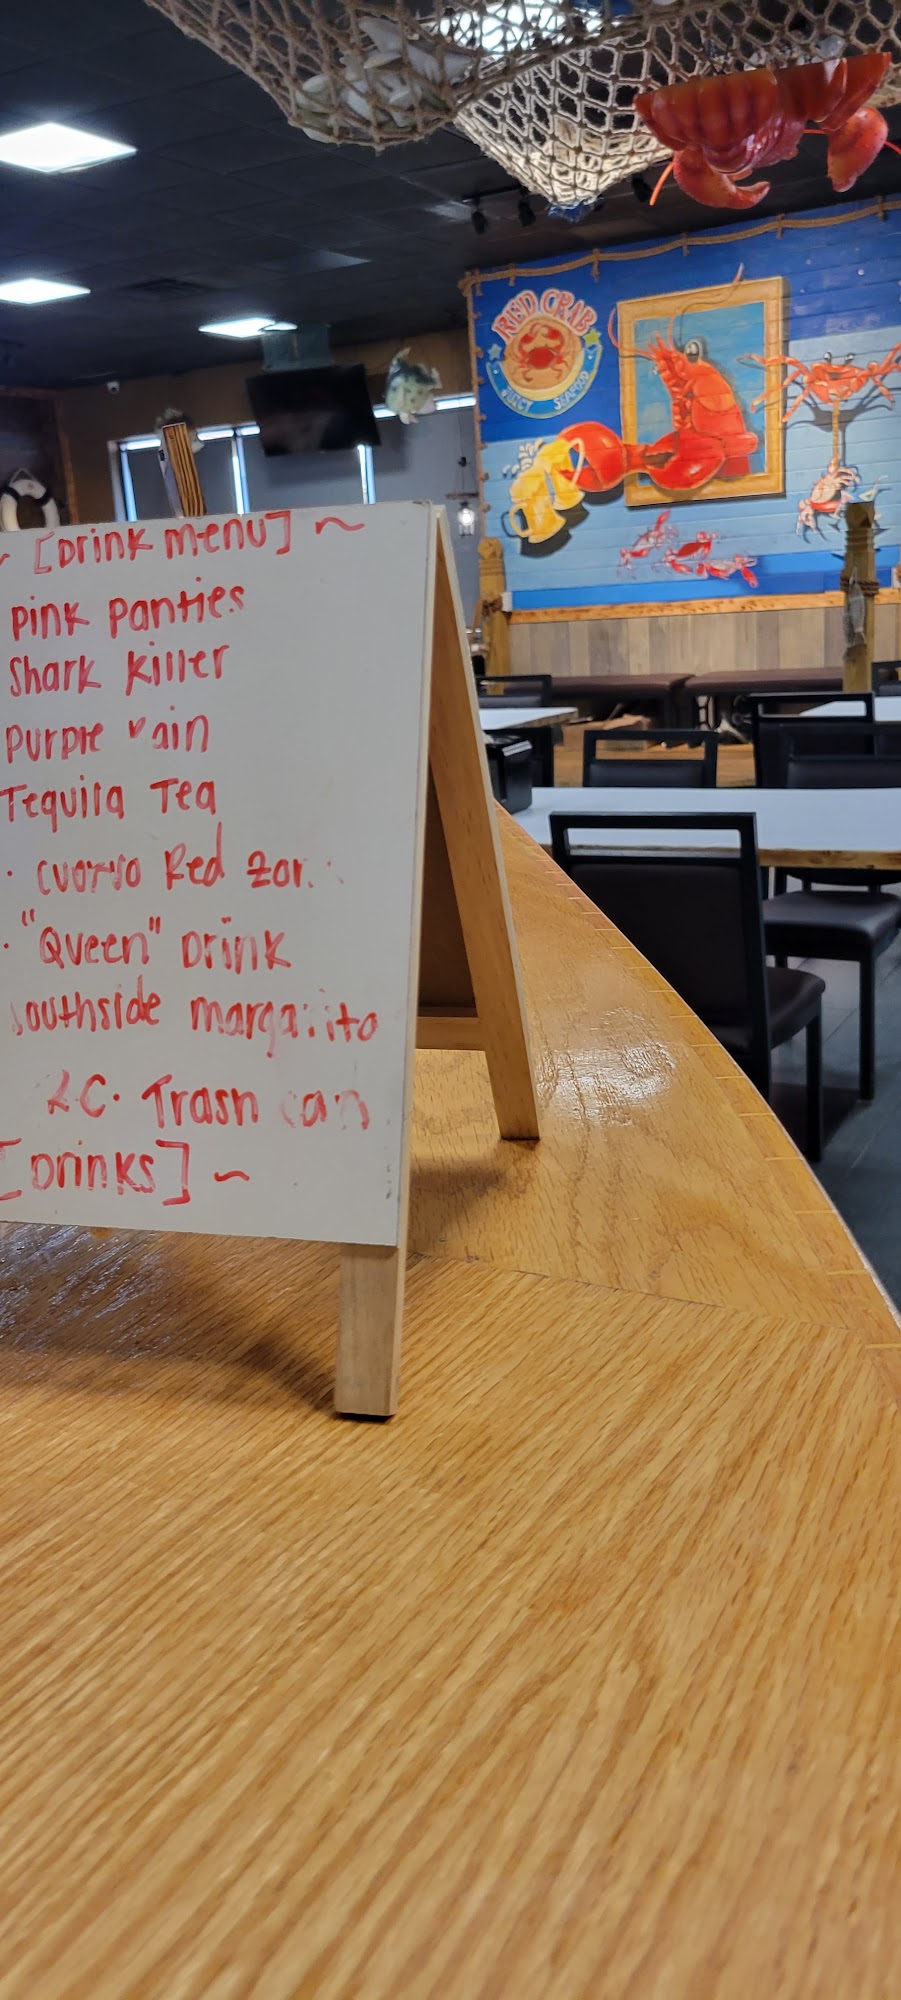 RED CRAB
JUICY SEAFOOD
~ [Drink menu] ~
Pink Panties
Shark Killer
Purple rain
Tequila Tea
• Cuorvo Red Zor.
• "Queen" Drink
Southside margarito
R.C. Trash can
[Drinks] ~